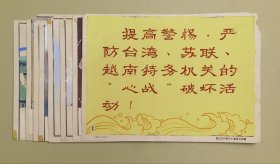 提高警惕，严
防台湾、苏联、
越南特务机关的
“心战”破坏活
动！